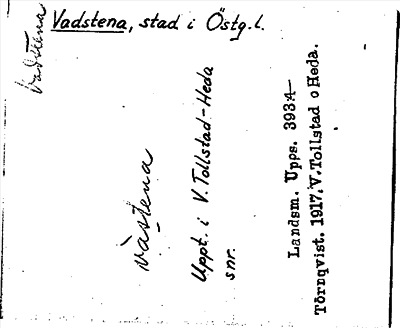 Vadstena, stad i Östg.l.
Vadstena
vàstena
Uppt. i V. Tollstad-Heda
snr.
Landsm. Upps. 3934
Törnqvist. 1917. V. Tollstad o Heda.